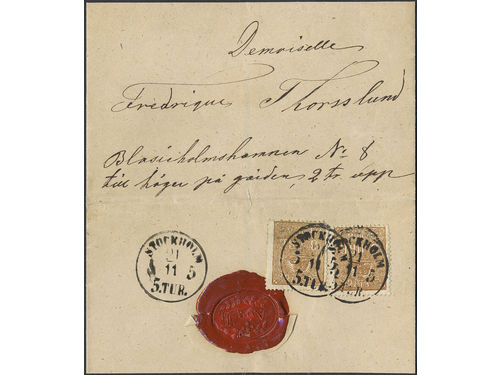 Demoiselle
Fredrique Thorsslund
Blasieholmshamnen No 8
till höger på gården, 2 tr. upp
STOCKHOLM
21
11 5
5.TUR.
STOCKHOLM
5.TUR.
STOCKHOLM
11 5